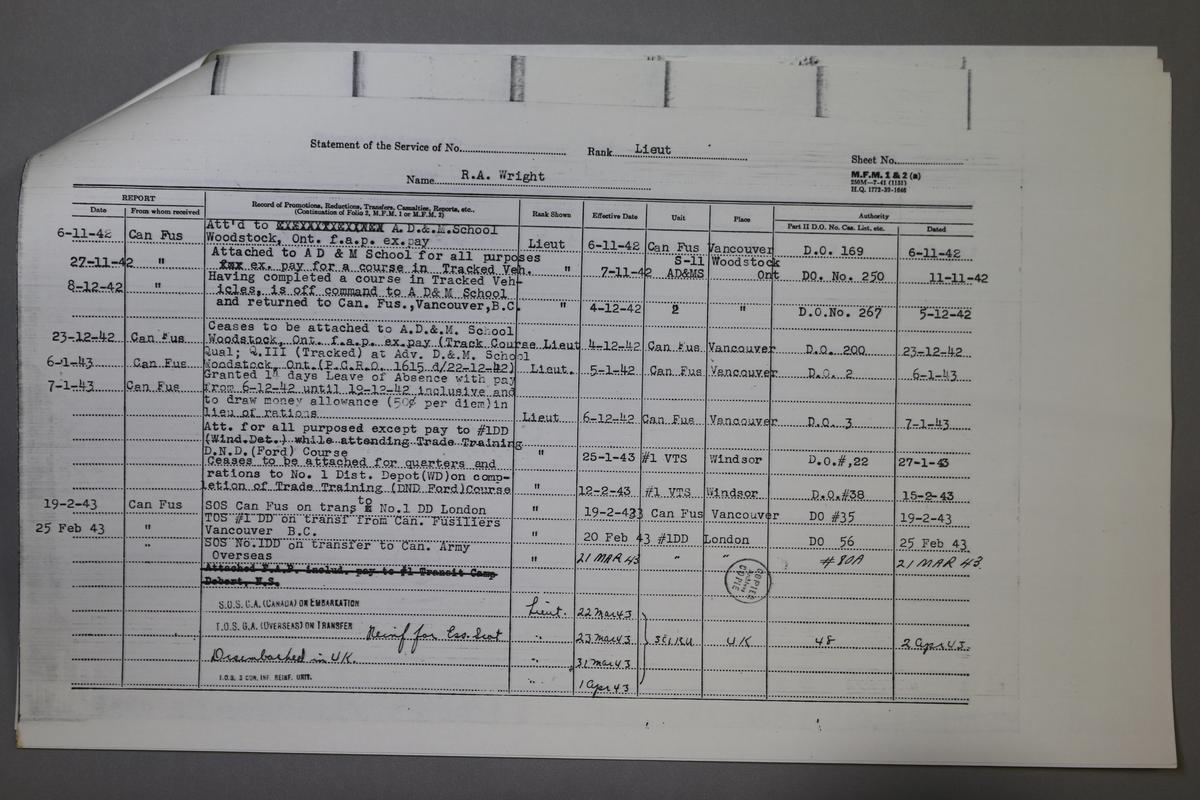 Statement of the Service of No. Rank Lieut
Name R.A. Wright
Sheet No.
M.F.M. 1 & 2 (a)
250M—7-41 (1151)
H.Q. 1772-39-1646
REPORT
Date From whom received
Record of Promotions, Reductions, Transfers, Casualties, Reports, etc.,
(Continuation of Folio 2, M.F.M. 1 or M.F.M. 2)
Rank Shown Effective Date Unit Place
Authority
Part II D.O. No. Cas. List, etc. Dated
Att'd to A.D.&.M.School
6-11-42 Can Fus Woodstock, Ont. f.a.p. ex.pay Lieut 6-11-42 Can Fus Vancouver D.O. 169 6-11-42
Attached to A D & M School for all purposes S-11 Woodstock
27-11-42 " ex. pay for a course in Tracked Veh. " 7-11-42 AD&MS Ont DO. No. 250 11-11-42
Having completed a course in Tracked Veh-
8-12-42 " icles, is off command to A D&M School
and returned to Can. Fus.,Vancouver,B.C. " 4-12-42 2 " D.O.No. 267 5-12-42
Ceases to be attached to A.D.&.M. School
23-12-42 Can Fus Woodstock, Ont. f.a.p. ex.pay (Track Course Lieut 4-12-42 Can Fus Vancouver D.O. 200 23-12-42
Qual; Q.III (Tracked) at Adv. D.&M. School
6-1-43 Can Fus Woodstock, Ont.(P.C.R.O. 1615 d/22-12-42) Lieut. 5-1-42 Can Fus Vancouver D.O. 2 6-1-43
Granted 14 days Leave of Absence with pay
7-1-43 Can Fus from 6-12-42 until 19-12-42 inclusive and
to draw money allowance (50¢ per diem)in
lieu of rations Lieut 6-12-42 Can Fus Vancouver D.O. 3 7-1-43
Att. for all purposed except pay to #1DD
(Wind.Det.) while attending Trade Training
D.N.D.(Ford) Course " 25-1-43 #1 VTS Windsor D.O.#,22 27-1-43
Ceases to be attached for quarters and
rations to No. 1 Dist. Depot(WD)on comp-
letion of Trade Training (DND Ford)Course " 12-2-43 #1 VTS Windsor D.O.#38 15-2-43
19-2-43 Can Fus SOS Can Fus on trans to No.1 DD London " 19-2-43 Can Fus Vancouver DO #35 19-2-43
TOS #1 DD on transf from Can. Fusiliers
25 Feb 43 " Vancouver B.C. " 20 Feb 43 #1DD London DO 56 25 Feb 43
" SOS No.1DD on transfer to Can. Army
Overseas " 21 MAR 43 " " #80A 21 MAR 43
Attached F.A.P. includ. pay to #1 Transit Camp
Debert, N.S.
COPIED
COPIÉ
S.O.S. C.A. (CANADA) ON EMBARKATION Lieut. 22 Mar 43
T.O.S. C.A. (OVERSEAS) ON TRANSFER Reinf for Ess. Scot " 23 Mar 43 3CIRU UK 48 2 Apr 43.
Disembarked in UK. " 31 Mar 43
T.O.S. 3 CDN. INF. REINF. UNIT. " 1 Apr 43